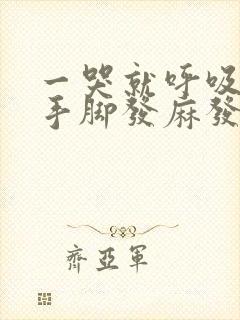 一哭就呼吸
手脚發麻發
齊亞軍